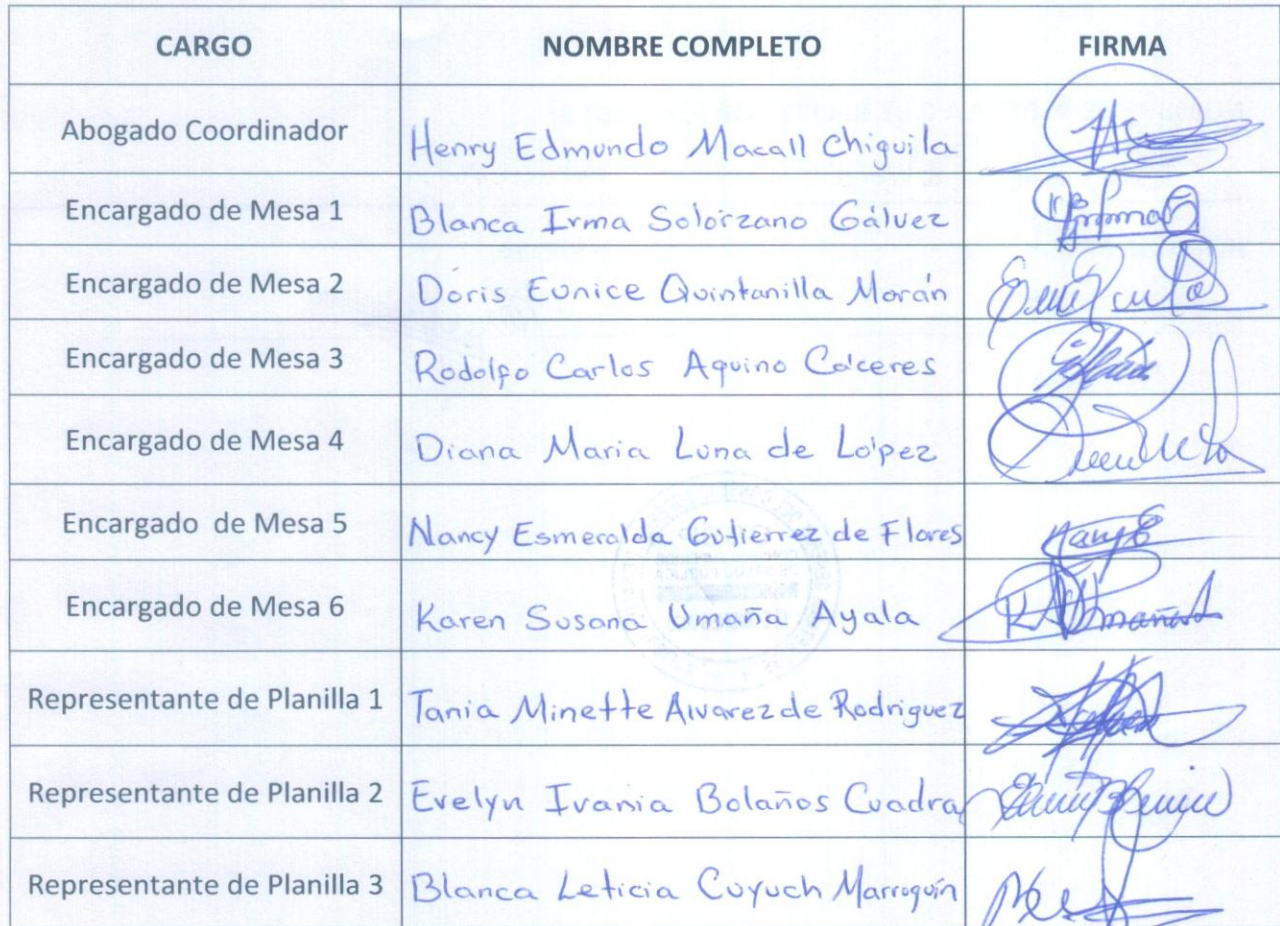 CARGO NOMBRE COMPLETO FIRMA
Abogado Coordinador Henry Edmundo Macall Chiguila
Encargado de Mesa 1 Blanca Irma Solórzano Gálvez
Encargado de Mesa 2 Doris Eunice Quintanilla Morán
Encargado de Mesa 3 Rodolfo Carlos Aquino Cáceres
Encargado de Mesa 4 Diana Maria Luna de López
Encargado de Mesa 5 Nancy Esmeralda Gutierrez de Flores
Encargado de Mesa 6 Karen Susana Umaña Ayala
Representante de Planilla 1 Tania Minette Alvarez de Rodriguez
Representante de Planilla 2 Evelyn Ivania Bolaños Cuadra
Representante de Planilla 3 Blanca Leticia Cuyuch Marroquín